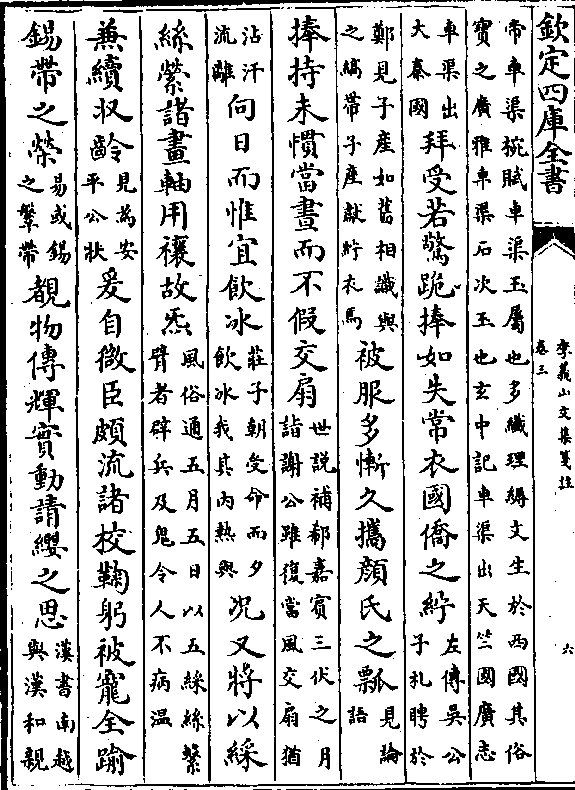 欽定四庫全書
李義山文集箋註
卷三
六
帝車渠椀賦車渠玉屬也多纖理縟文生於西國其俗
寶之廣雅車渠石次玉也玄中記車渠出天竺國廣志
車渠出
大秦國
拜受若驚跪捧如失常衣國僑之紵
左傳吳公
子札聘於
鄭見子產如舊相識與
之縞帶子產獻紵衣焉
被服多慚久攜顏氏之瓢
見論
語
捧持未慣當晝而不假交扇
世說補郗嘉賓三伏之月
詣謝公雖復當風交扇猶
沾汗
流離
向日而惟宜飲冰
莊子朝受命而夕
飲冰我其內熱與
況又將以綵
絲縈諸畫軸用禳故炁
風俗通五月五日以五綵絲繫
臂者辟兵及鬼令人不病溫
兼續収齡
見為安
平公狀
爰自微臣頗流諸校鞠躬被寵全踰
錫帶之榮
易或錫
之鞶帶
覩物傳輝實動請纓之思
漢書南越
與漢和親